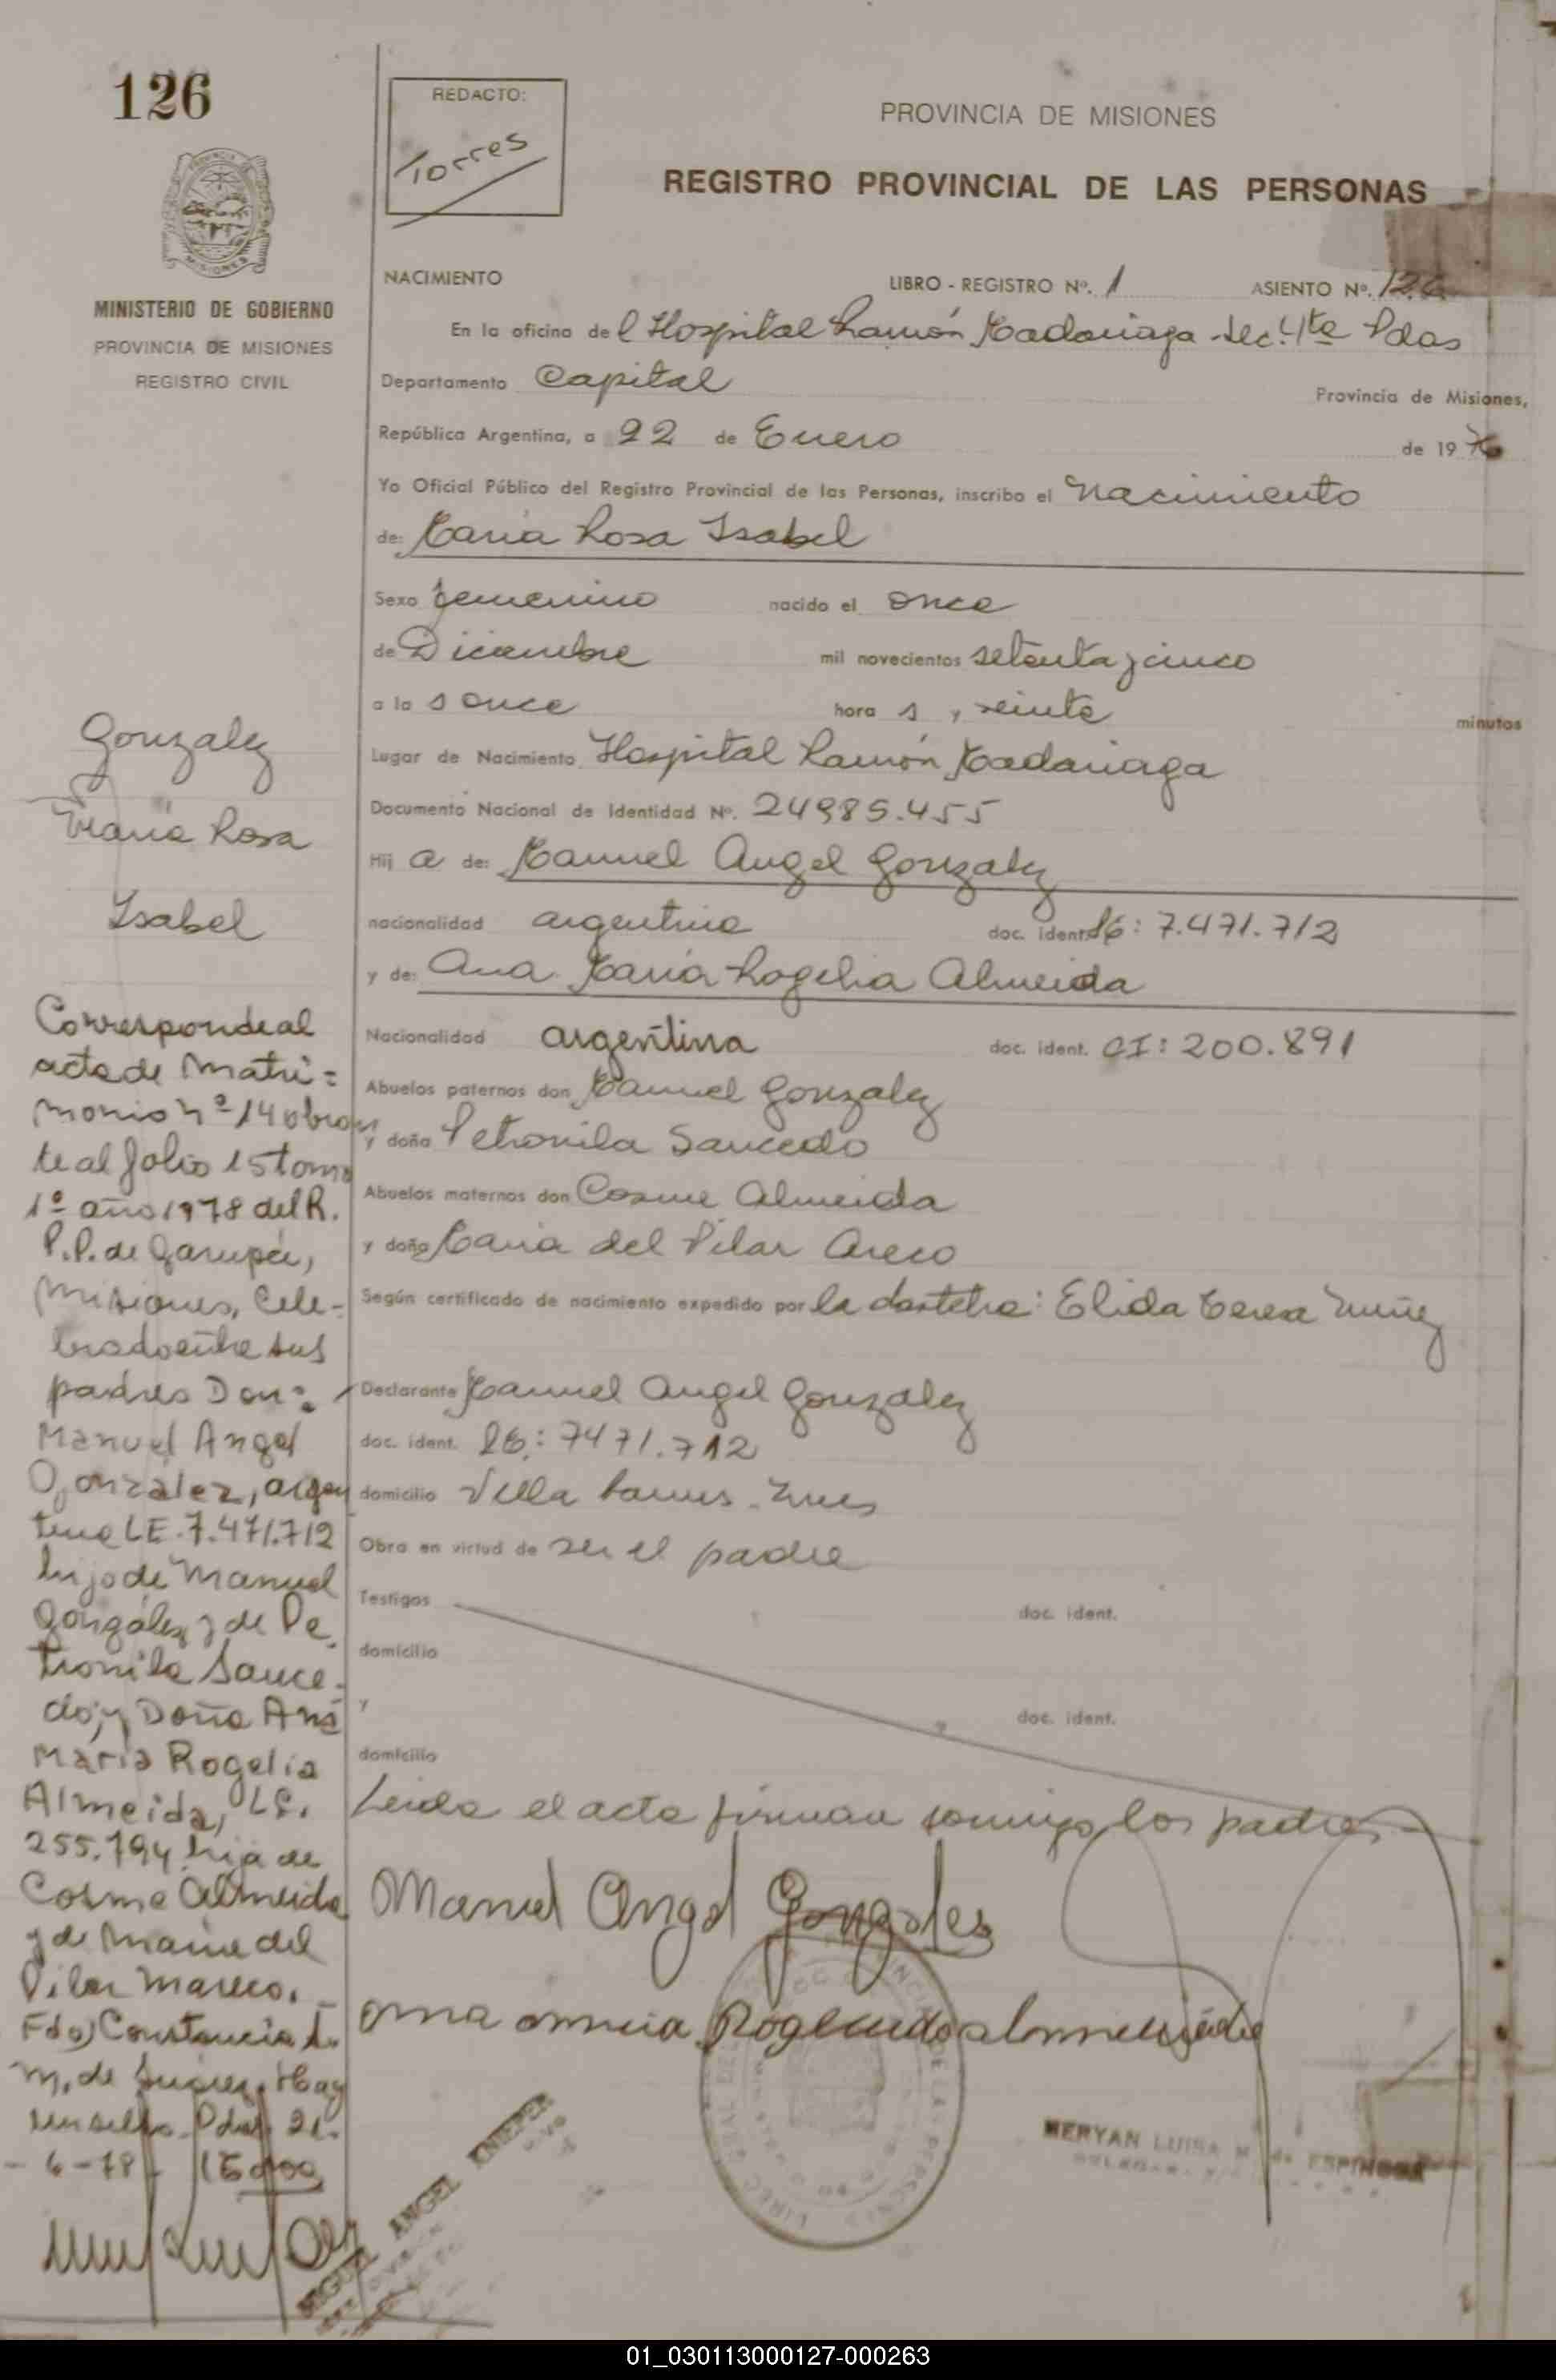 126
REDACTO:
Torres
PROVINCIA DE MISIONES
REGISTRO PROVINCIAL DE LAS PERSONAS
MISIONES
MINISTERIO DE GOBIERNO
PROVINCIA DE MISIONES
REGISTRO CIVIL
NACIMIENTO LIBRO - REGISTRO Nº. 1 ASIENTO Nº. 126
En la oficina del Hospital Ramón Madariaga Sec. 4ta Pdas
Departamento Capital Provincia de Misiones,
República Argentina, a 22 de Enero de 1976
Yo Oficial Público del Registro Provincial de las Personas, inscribo el Nacimiento
de: María Rosa Isabel
Sexo femenino nacido el once
de Diciembre mil novecientos setenta y cinco
a las once horas y veinte minutos
Lugar de Nacimiento Hospital Ramón Madariaga
Documento Nacional de Identidad Nº. 24985.455
Hija de: Manuel Angel Gonzalez
nacionalidad argentina doc. ident. 7.471.712
y de: Ana María Rogelia Almeida
Nacionalidad argentina doc. ident. CI: 200.891
Abuelos paternos don Manuel Gonzalez
y doña Petronila Saucedo
Abuelos maternos don Cosme Almeida
y doña María del Pilar Areco
Según certificado de nacimiento expedido por la Elida Teresa
Declarante Manuel Angel Gonzalez
doc. ident. 7471.712
domicilio Villa
Obra en virtud de ser el padre
Testigos doc. ident.
domicilio
y doc. ident.
domicilio
Leida el acta firman conmigo los padres
Manuel Angel Gonzales
Gonzalez
María Rosa
Isabel
Corresponde al
acta de Matri=
monio nº 14 obran
te al folio 15 tomo
1º año 1978 del R.
P.P. de Garupá,
Misiones, Cele-
brado entre sus
padres Don:
Manuel Angel
González, argen
tino LE. 7.471.712
hijo de Manuel
González y de Pe
tronila Sauce-
do; y Doña Ana
María Rogelia
Almeida,
255.794 hija de
Cosme Almeida
y de María del
Pilar Mareco.
Fdo) Constancia
M. de Hay
un sello. Pdas 21-
-6-78
MIGUEL ANGEL KNIEPER
MERYAN LUISA M de ESPINOSA
01_030113000127-000263